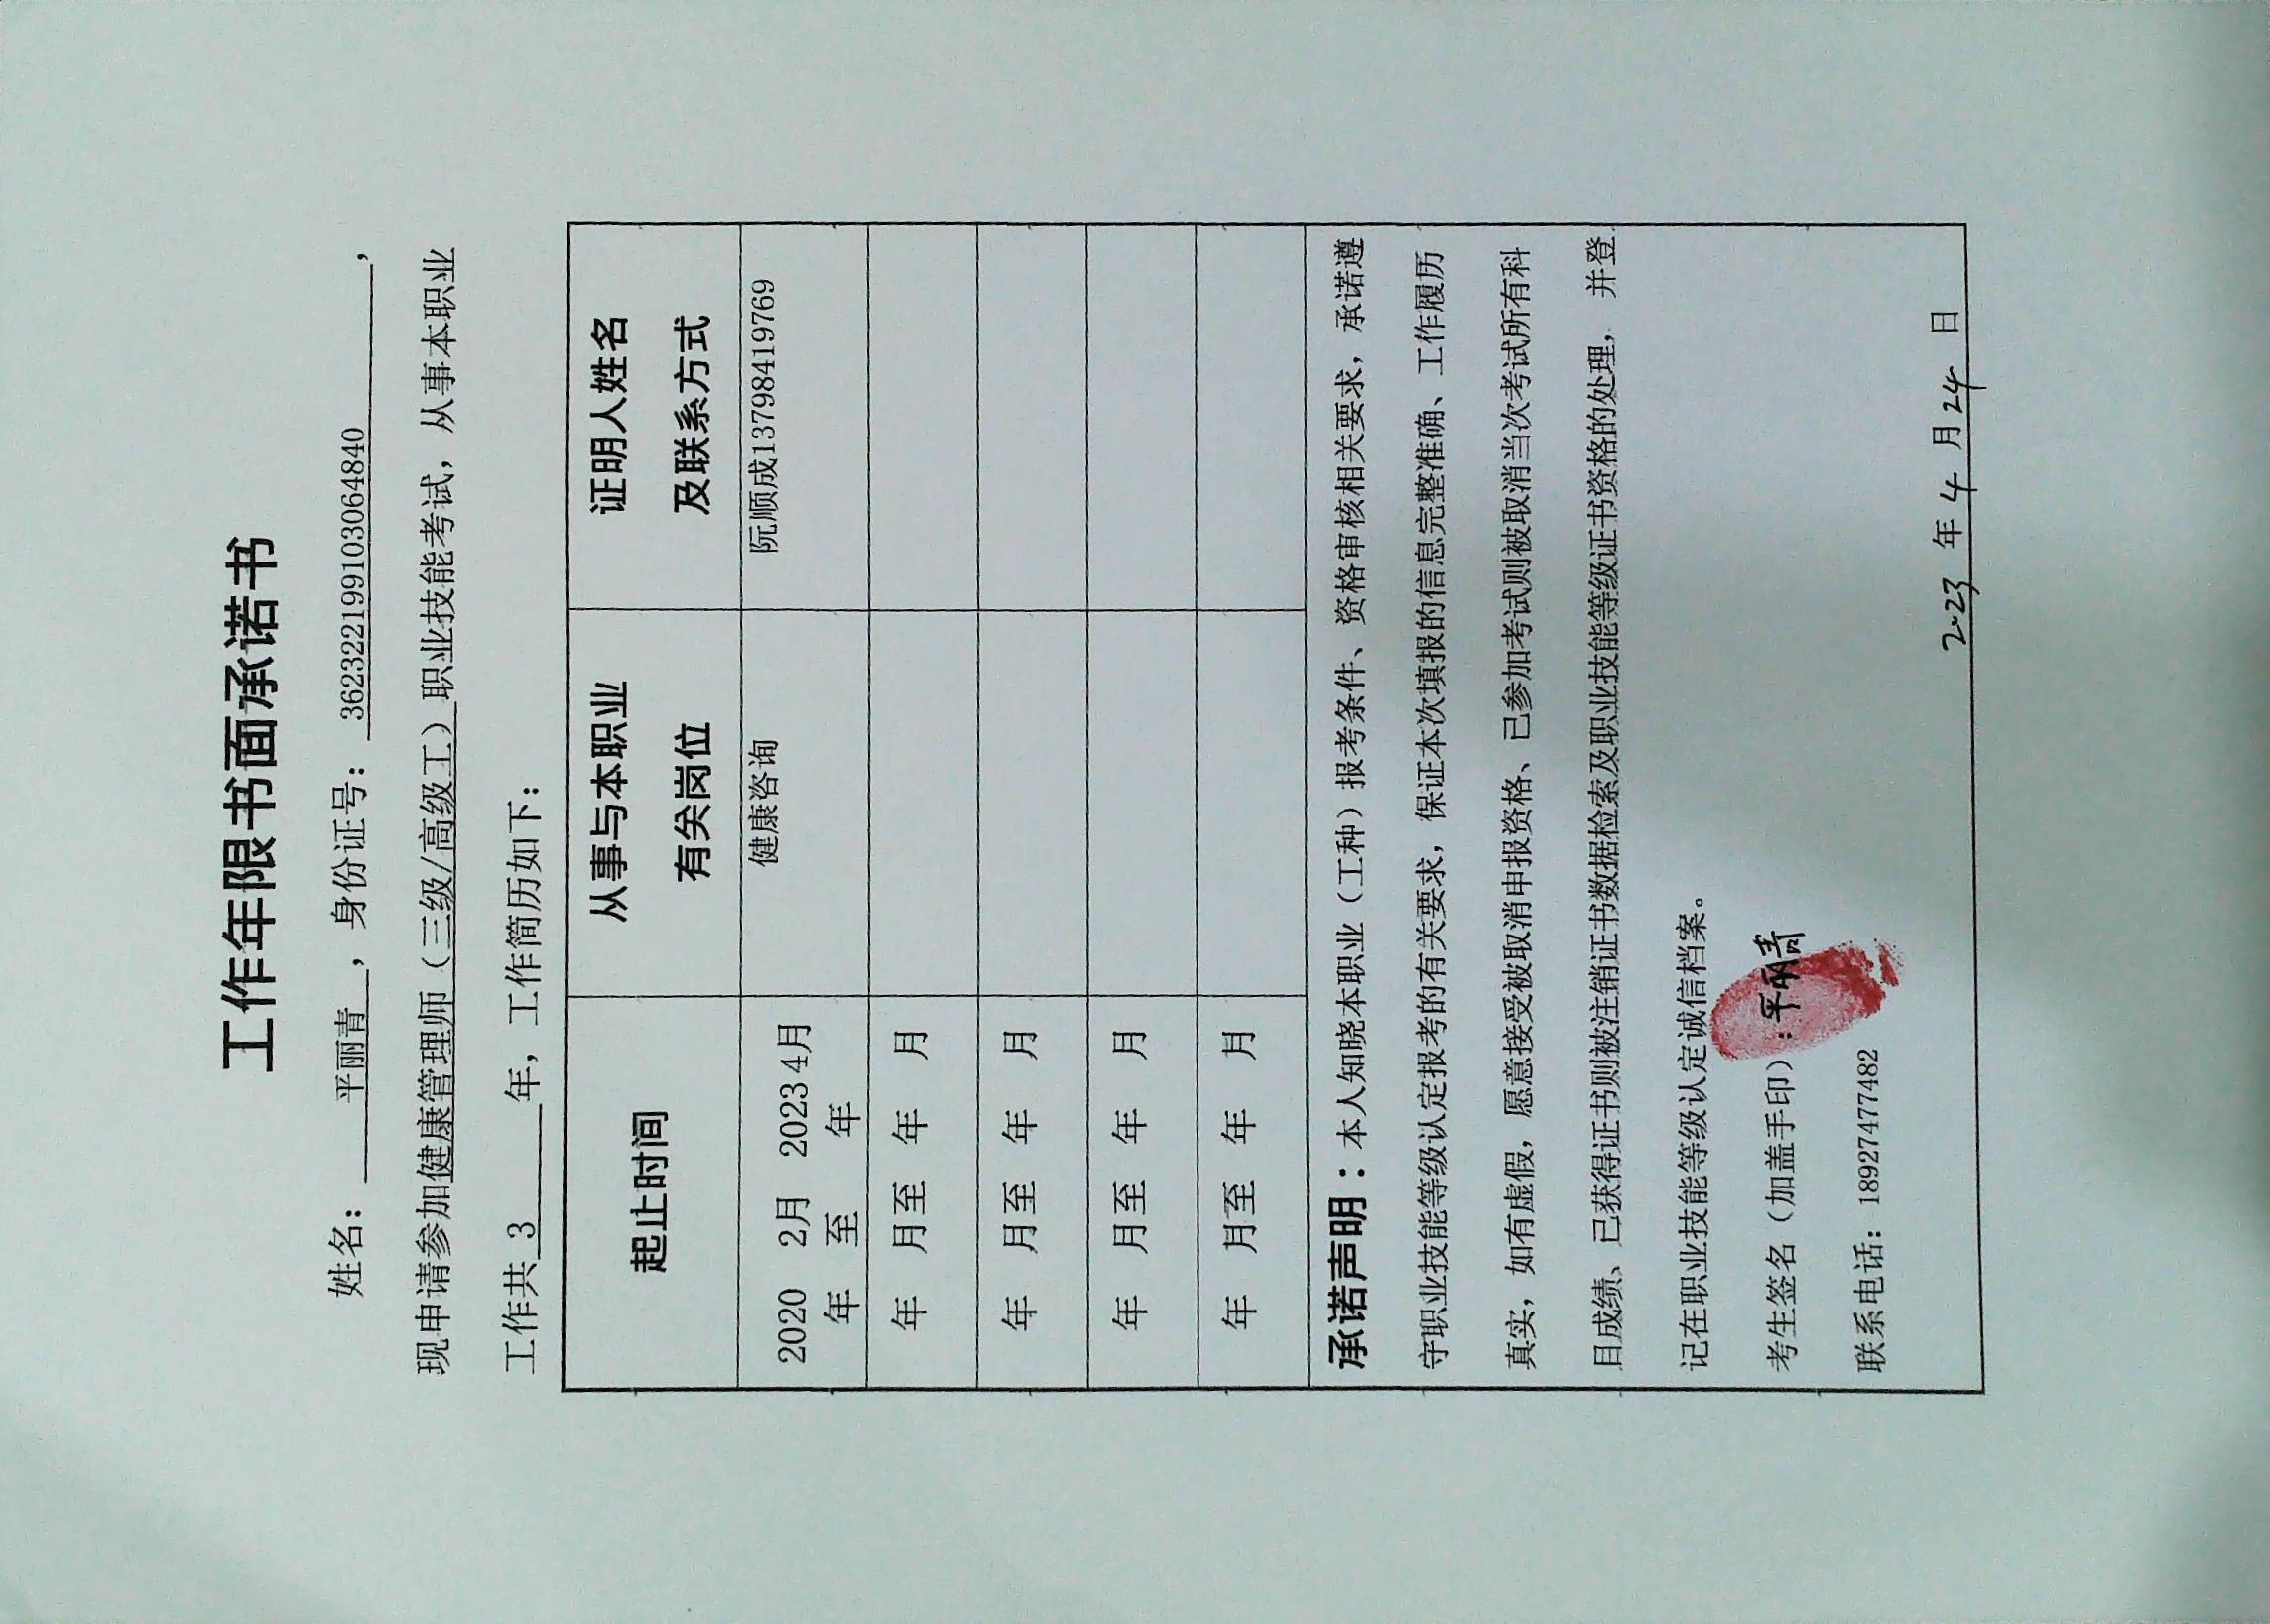 工作年限书面承诺书
姓名：平丽青，身份证号：362322199103064840，
现申请参加健康管理师（三级/高级工）职业技能考试，从事本职业
工作共3年，工作简历如下：
起止时间 从事与本职业有关岗位 证明人姓名及联系方式
2020年2月至2023年4月 健康咨询 阮顺成13798419769
年 月至 年 月
年 月至 年 月
年 月至 年 月
年 月至 年 月
承诺声明：本人知晓本职业（工种）报考条件、资格审核相关要求，承诺遵
守职业技能等级认定报考的有关要求，保证本次填报的信息完整准确、工作履历
真实，如有虚假，愿意接受被取消申报资格、已参加考试则被取消当次考试所有科
目成绩、已获得证书则被注销证书数据检索及职业技能等级证书资格的处理，并登
记在职业技能等级认定诚信档案。
考生签名（加盖手印）：平丽青
联系电话：18927477482
2023年4月24日